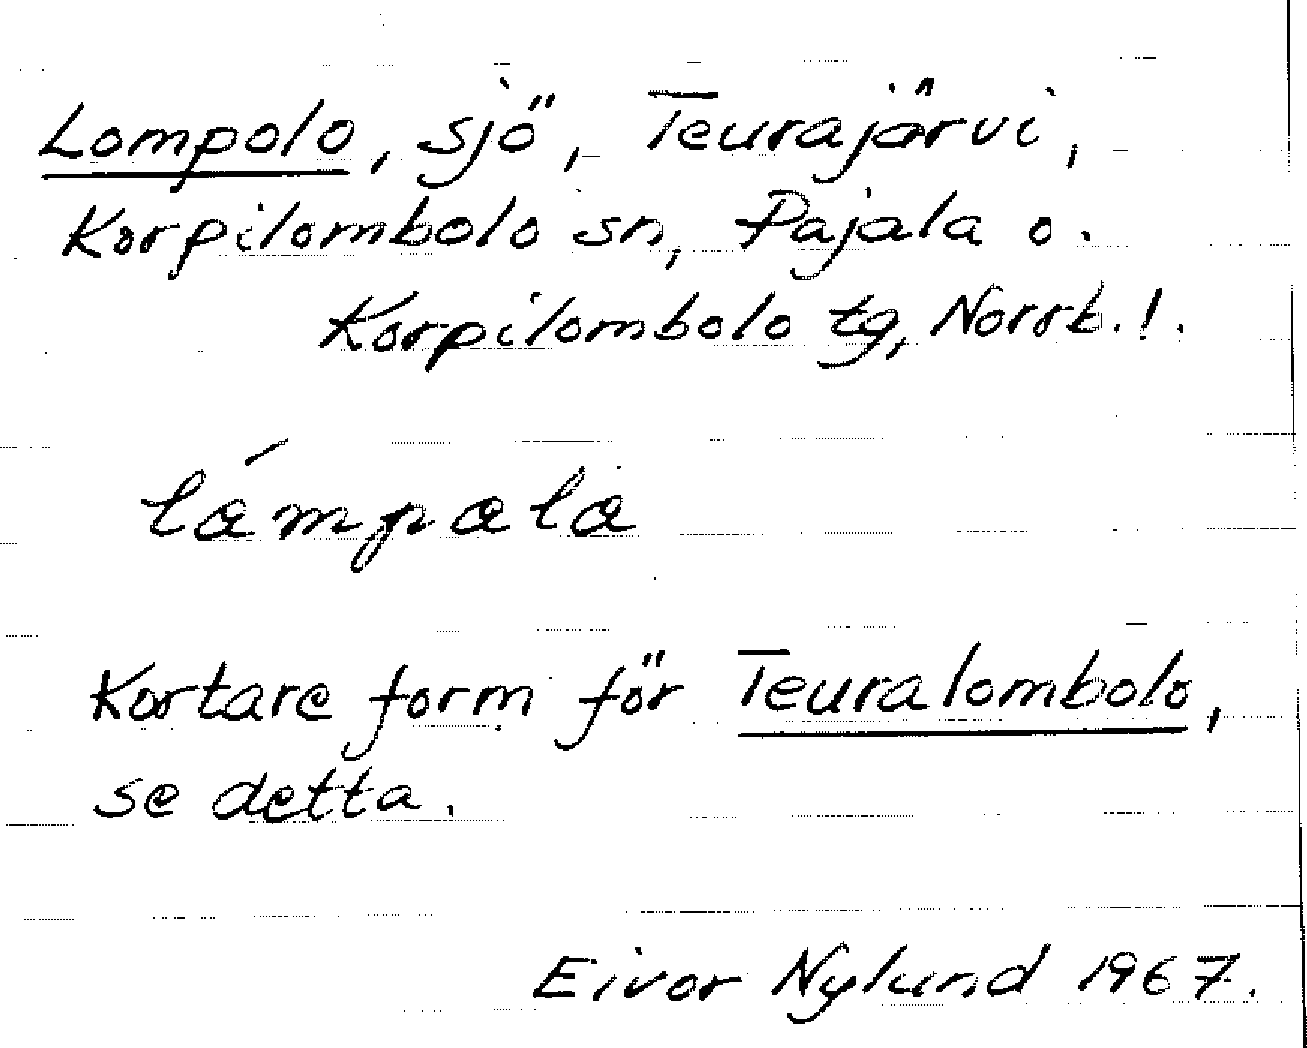 Lompolo, sjö, Teurajärvi,
Korpilombolo sn, Pajala o.
Korpilombolo tg, Norrb.!.
lámpala
Kortare form för Teuralombolo,
se detta.
Eivor Nylund 1967.